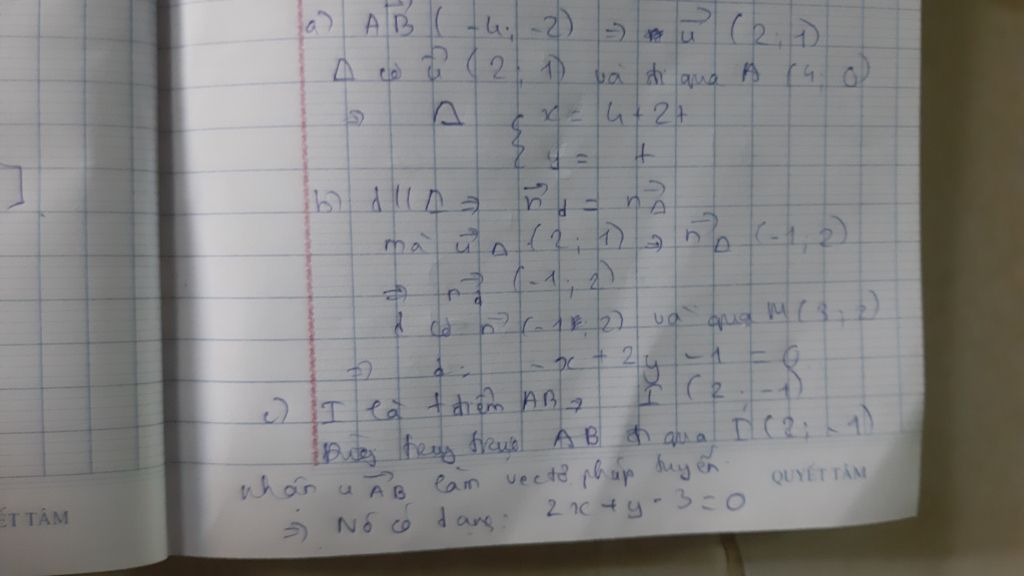 a) AB (-4; -2) ⇒ u (2; 1)
Δ có u (2; 1) và đi qua A (4; 0)
⇒ Δ { x = 4 + 2t
y = t
b) d // Δ ⇒ n d = n Δ
mà u Δ (2; 1) ⇒ n Δ (-1; 2)
⇒ n d (-1; 2)
d có n (-1; 2) và qua M (3; 2)
⇒ d: -x + 2y - 1 = 0
c) I là t điểm AB ⇒ I (2; -1)
Đường trung trực AB đi qua I (2; -1)
nhận u AB làm vectơ pháp tuyến
⇒ Nó có dạng: 2x + y - 3 = 0
QUYẾT TÂM
ẾT TÂM